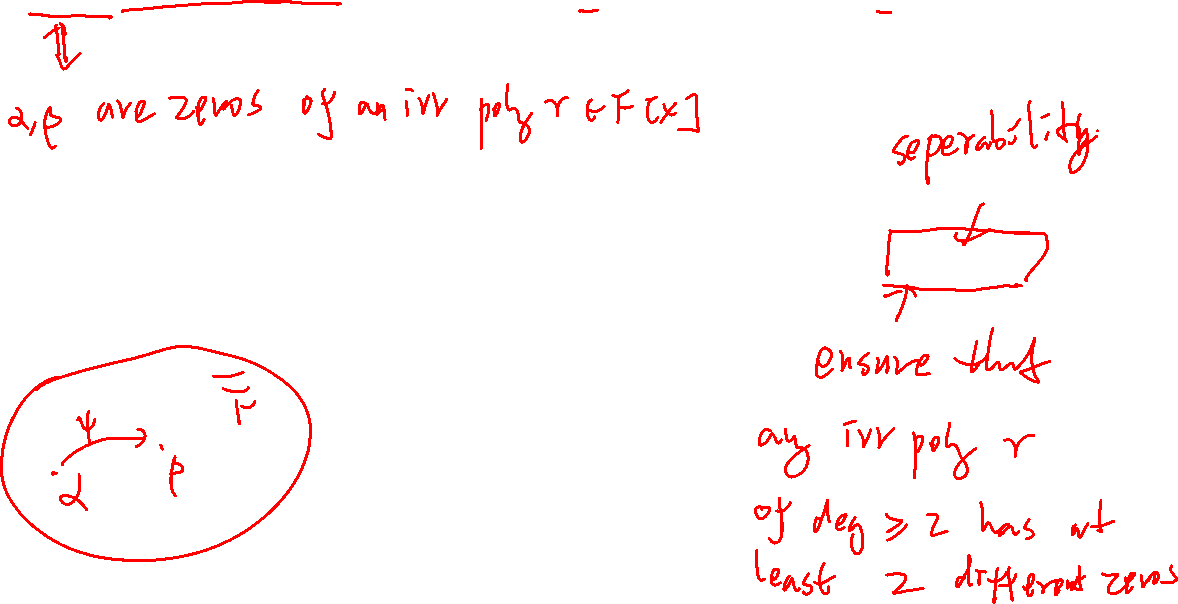 α, β are zeros of an irr poly r ∈ F[x]
seperability.
ensure that
any irr poly r
of deg ≥ 2 has at
least 2 different zeros
F̿
ψ
α
β